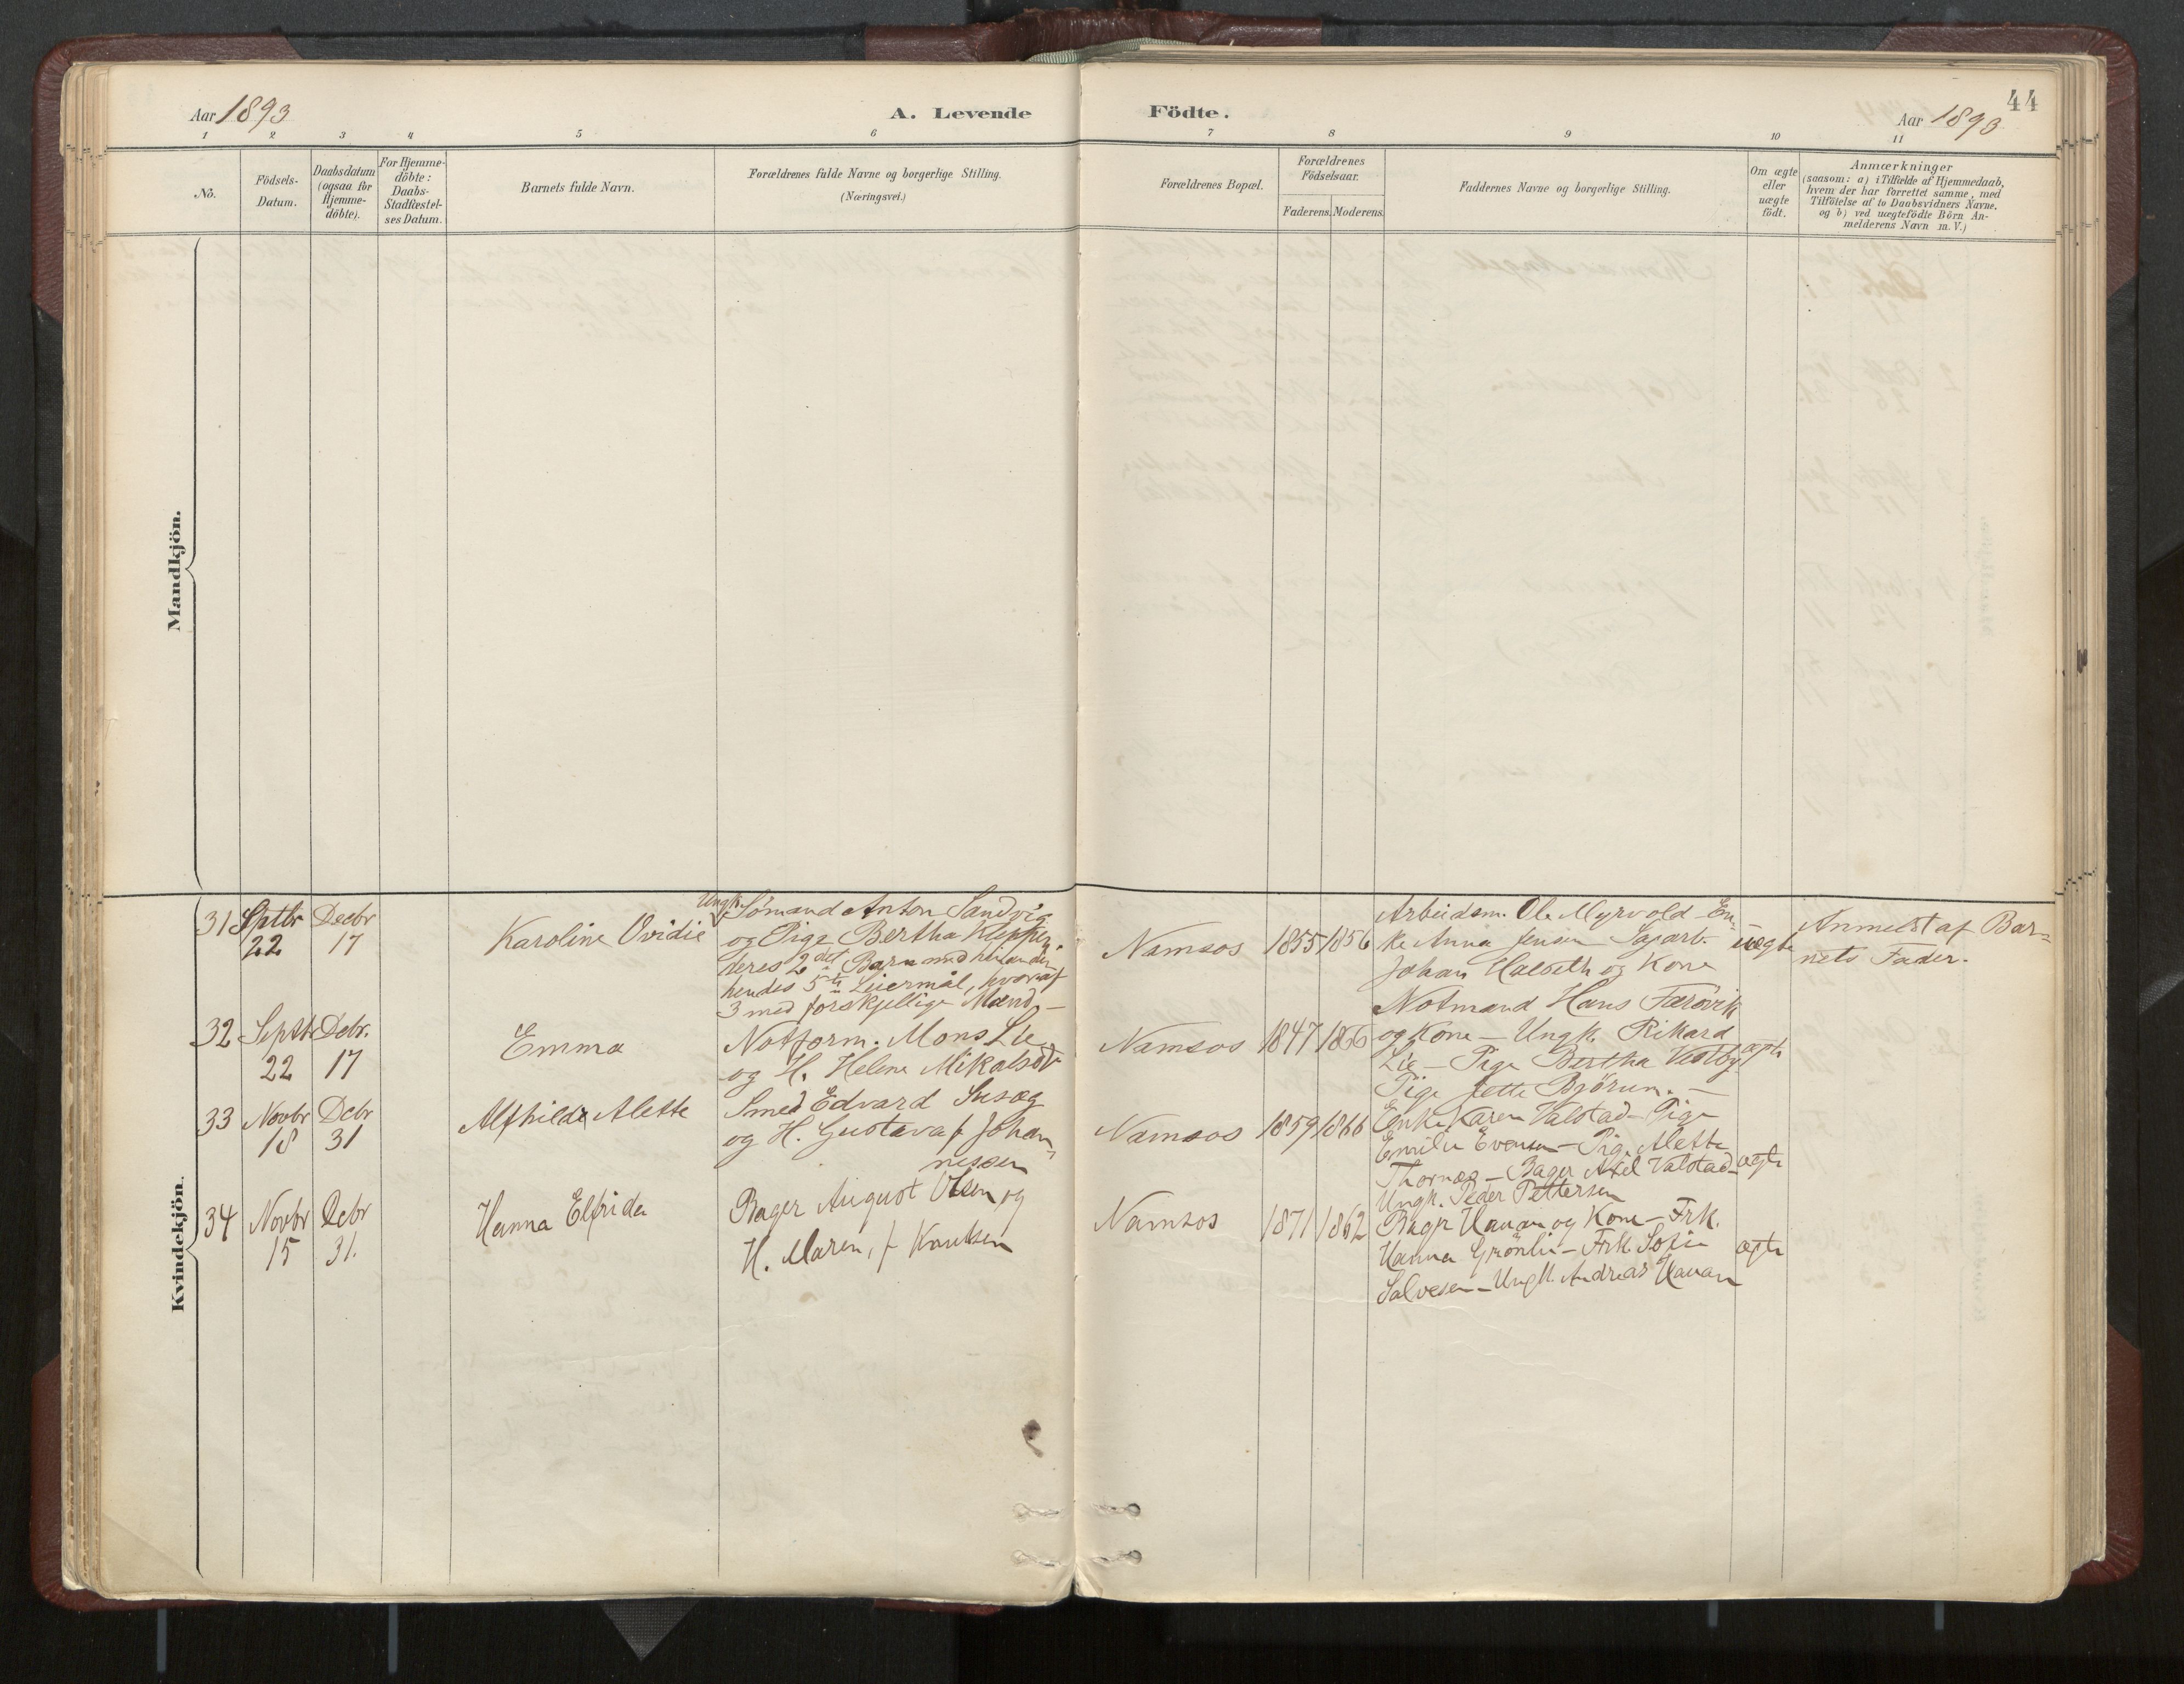 44
Aar 1893
A. Levende
Födte.
Aar 1893
1 2 3 4 5 6 7 8 9 10 11
No.
Födsels-
Datum.
Daabsdatum
(ogsaa for
Hjemme-
döbte).
For Hjemme-
döbte:
Daabs-
Stadfæstel-
ses Datum.
Barnets fulde Navn.
Forældrenes fulde Navne og borgerlige Stilling.
(Næringsvei.)
Forældrenes Bopæl.
Forældrenes
Födselsaar.
Faderens. Moderens.
Faddernes Navne og borgerlige Stilling.
Om ægte
eller
uægte
födt.
Anmærkninger
(saasom: a) i Tilfælde af Hjemmedaab,
hvem der har forrettet samme, med
Tilföielse af to Daabsvidners Navne.
og b) ved uægtefödte Börn An-
melderens Navn m.V.)
Mandkjön.
Kvindekjön.
31 Sptbr 22
Decbr 17
Karoline Ovidie
Ungk. Sömand Anton Sandvig
og Pige Bertha Kleppen.
deres 2det Barn med hinanden
hendes 5te Leiermål, hvoraf
3 med forskjellige Mænd. —
Namsos
1855 1856
Arbeidsm. Ole Myrvold – En-
ke Anna Jensen
Johan Halseth og Kone
uægte
Anmeldt af Bar-
nets Fader.
32 Septbr 22
Debr. 17
Emma
Notform. Mons Lie
og H. Helene Mikalsdr
Namsos
1847 1866
Notmand Hans Færövik
og Kone – Ungk. Rikard
Lie – Pige Bertha Vestby
Pige Jette Björum. –
ægte
33 Novbr 18
Debr 31
Alfhilde Alette
Smed Edvard Susæg
og H. Gustava f. Johan-
nessen
Namsos
1859 1866
Enke Karen Valstad – Pige
Emilie Evensen – Pige Alette
Thornæs – Bager Axel Valstad –
Ungk. Peder Pettersen
ægte
34 Novbr 15
Debr 31.
Hanna Elfrida
Bager August Olsen og
H. Maren, f Knutsen
Namsos
1871 1862
Bager Hauan og Kone – Frk.
Hanna Grönlie – Frk. Sofie
Salvesen – Ungk. Andreas Hauan
ægte